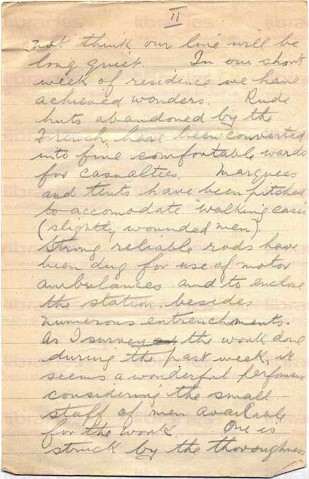 II
not think our line will be
long quiet. In our short
week of residence we have
achieved wonders. Rude
huts abandoned by the
French have been converted
into fine comfortable wards
for casualties. Marquees
and tents have been pitched
to accomodate "walking cases"
(slightly wounded men)
Strong reliable roads have
been dug for use of motor
ambulances and to enclose
the station, besides
numerous entrenchments.
As I survey the work done
during the past week, it
seems a wonderful performance
considering the small
staff of men available
for the work. One is
struck by the thoroughness